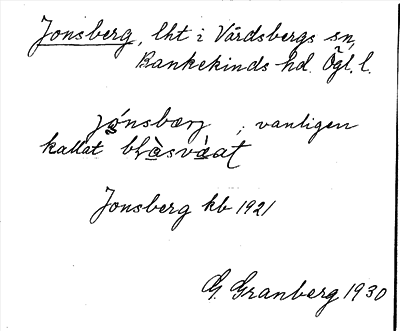 Jonsberg, lht i Vårdsbergs sn,
Bankekinds hd. Ögl. l.
jónsbærj, vanligen
kallat
Jonsberg kb 1921
G. Granberg 1930